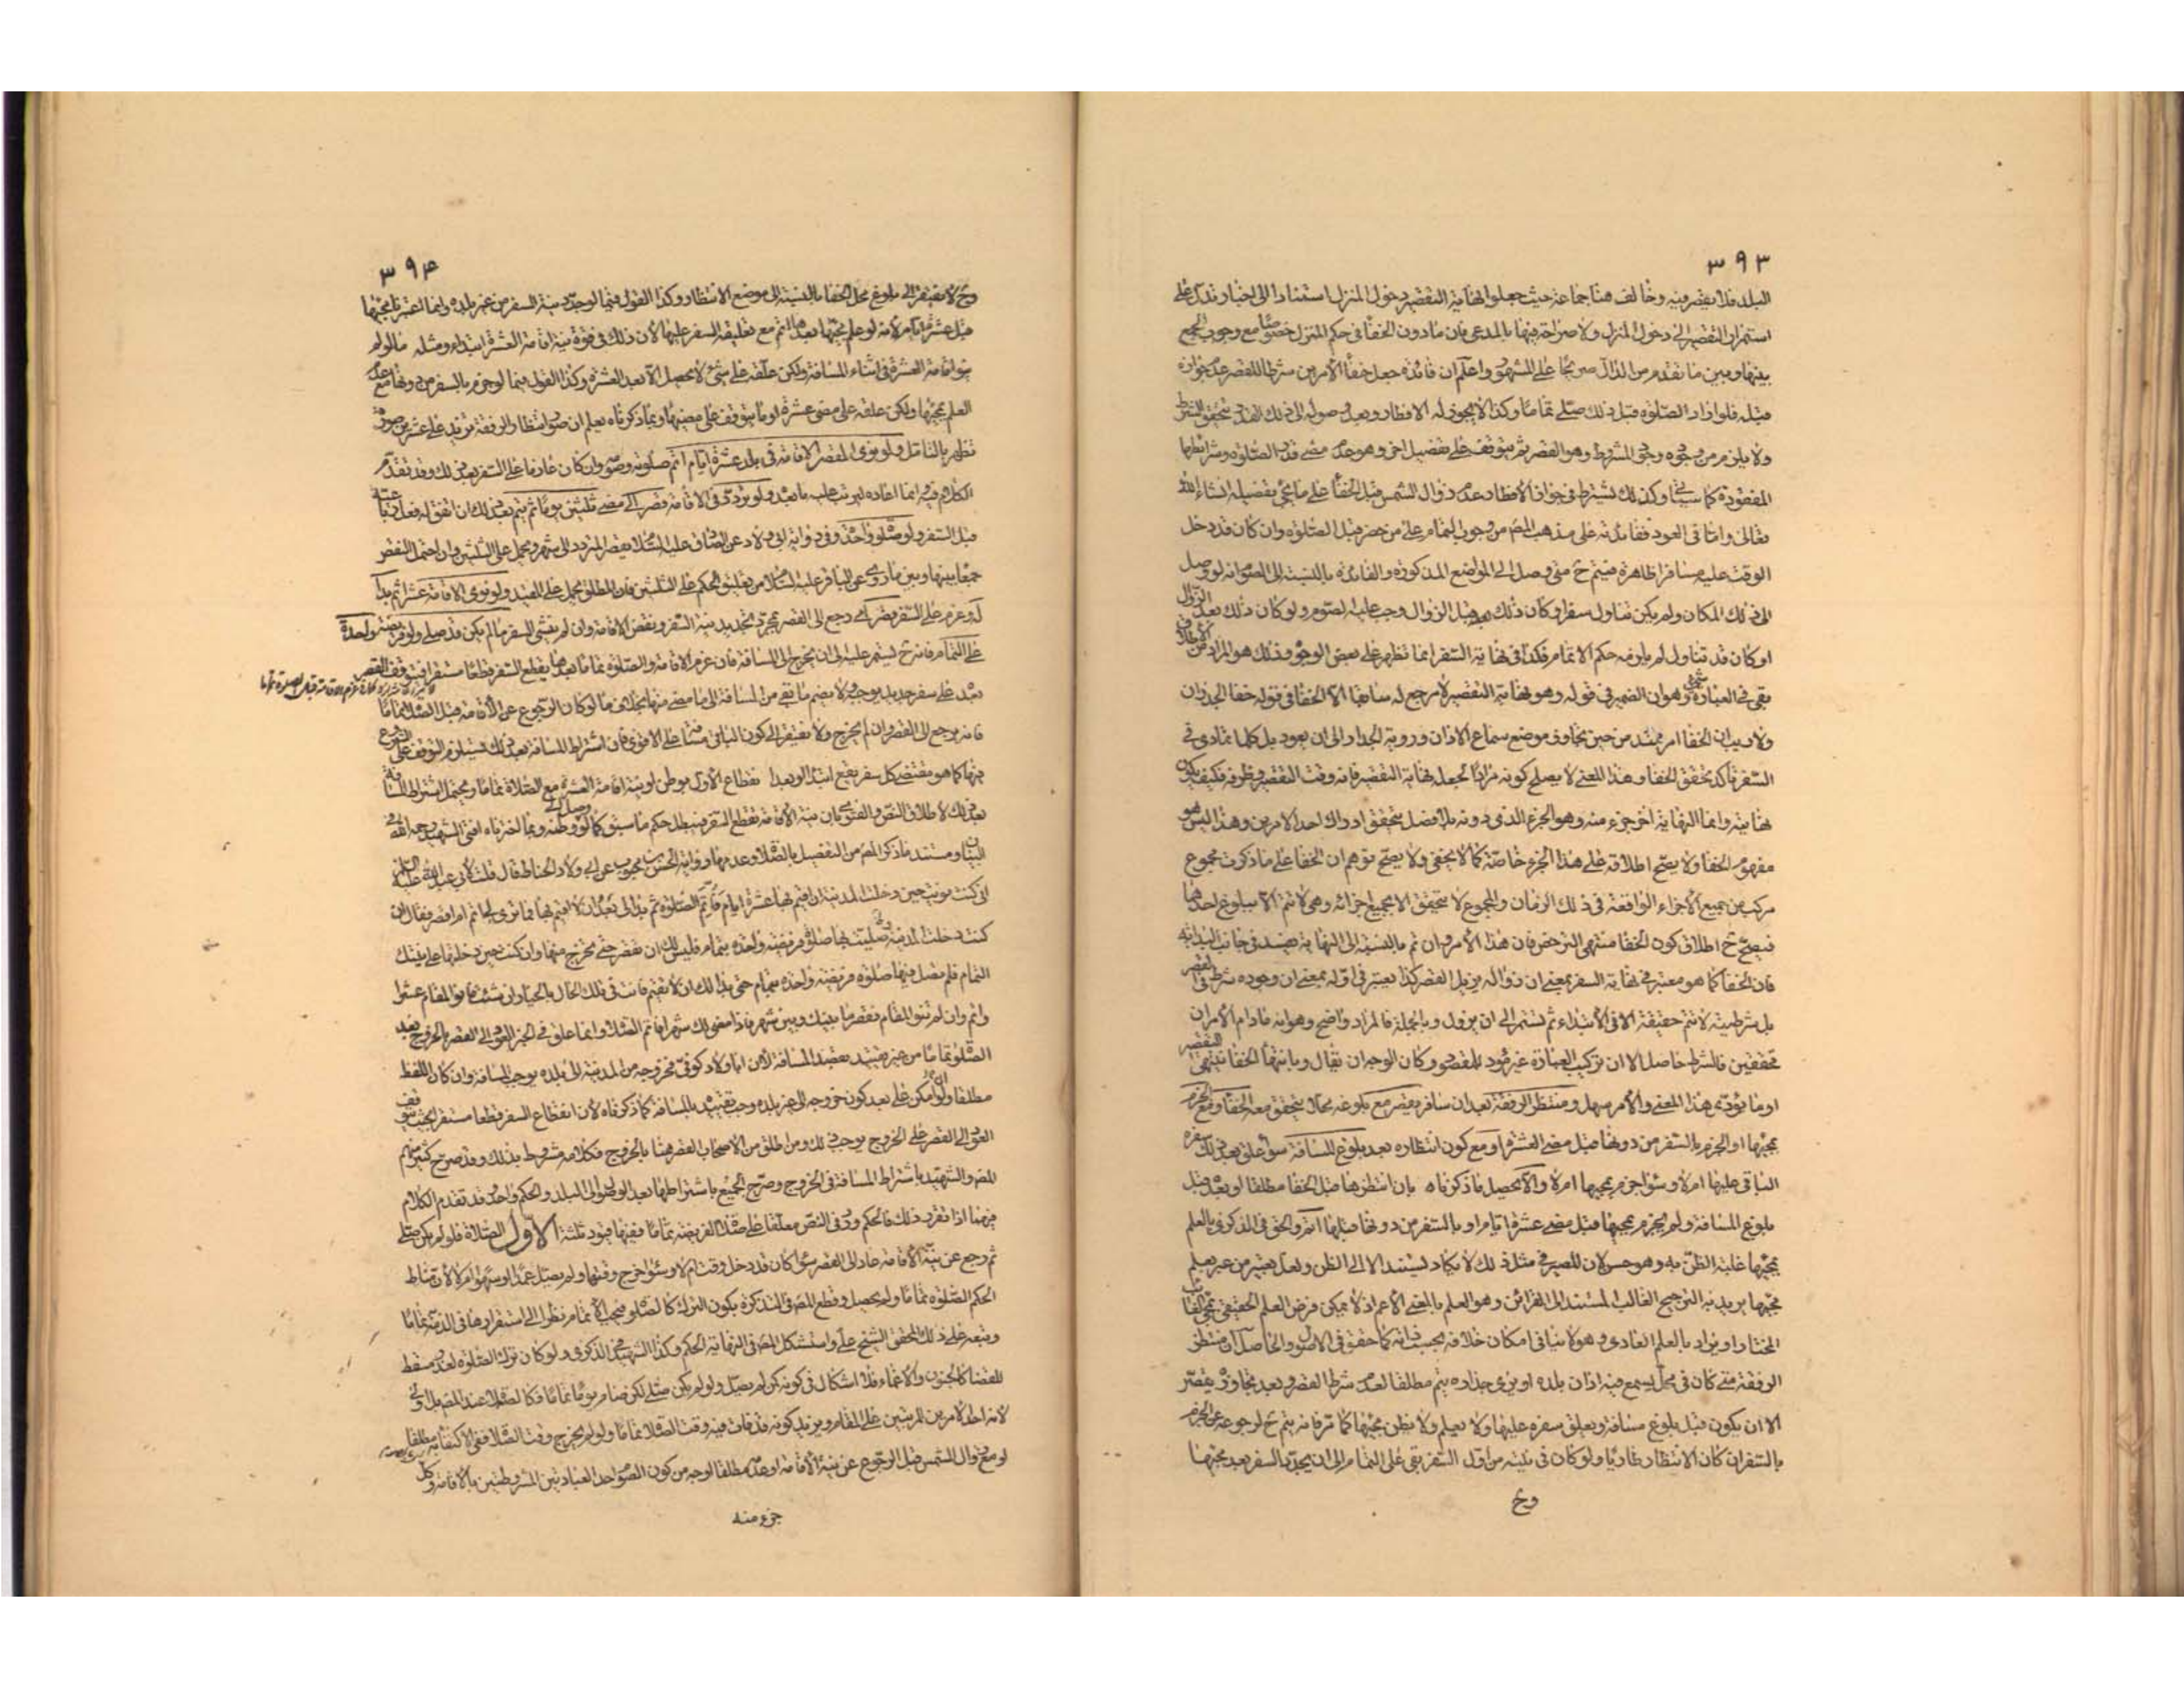 ٣٩٣
البلد فلا يقصر فيه وخالف هنا جماعة حيث جعلوا نهاية التقصير دخول المنزل استنادا الى اخبار تدل على
استمرار التقصير الى دخول المنزل ولا صراحة فيها بالمدعى فان ما دون الخفاء في حكم المنزل خصوصا مع وجوب الجمع
بينها وبين ما تقدم من الدال صريحا على المشهور واعلم ان فائدة جعل خفاء الامرين شرطا للقصر عدم جوازه
قبله فلو اراد الصلوة قبل ذلك صلى تماما وكذا لا يجوز له الافطار وبعد وصوله الى ذلك القدر يتحقق الشرط
ولا يلزم من وجوده وجود المشروط وهو القصر ثم يتوقف على تفصيل اخر وهو عدم مضى قدر الصلوة وشرائطها
المفقودة كما سياتي وكذلك يشترط في جواز الافطار عدم زوال الشمس قبل الخفاء على ما يجئ تفصيله انشاء الله
تعالى واما في العود ففائدته على مذهب المصـ من وجوب التمام على من حضر قبل الصلوة وان كان قد دخل
الوقت عليه مسافرا ظاهرة فيتم ح متى وصل الى المواضع المذكورة والفائدة بالنسبة الى الصوم انه لو وصل
الى ذلك المكان ولم يكن تناول سفرا وكان ذلك قبل الزوال وجب عليه الصوم ولو كان ذلك بعد الزوال
او كان قد تناول لم يلزمه حكم الاتمام فكذا في نهاية السفر انما تظهر على بعض الوجوه وذلك هو المراد من الاطلاق
بقى في العبارة شئ وهو ان الضمير في قوله وهو نهاية التقصير لا مرجع له سابقا الا الخفاء في قوله خفاء الجدران
ولا ريب ان الخفاء امر ممتد من حين تجاوز موضع سماع الاذان وروية الجدار الى ان يعود بل كلما تمادى في
السفر تاكد تحقق الخفاء وهذا المعنى لا يصلح كونه مرادا لجعل نهاية التقصير فانه وقت التقصير وظرفه فكيف يكون
نهايته وانما النهاية اخر جزء منه وهو الجزء الذي دونه بلا فصل يتحقق ادراك احد الامرين وهذا ليس هو
مفهوم الخفاء ولا يصح اطلاقه على هذا الجزء خاصة كما لا يخفى ولا يصح توهم ان الخفاء على ما ذكرت مجموع
مركب من جميع الاجزاء الواقعة في ذلك الزمان والمجموع لا يتحقق الا بجميع اجزائه وهي لا تتم الا ببلوغ احدهما
فيصح ح اطلاق كون الخفاء منتهى الترخص فان هذا الامر وان تم بالنسبة الى النهاية يفسد في جانب البداية
فان الخفاء كما هو معتبر في نهاية السفر بمعنى ان زواله يزيل القصر كذا يعتبر في اوله بمعنى ان وجوده شرط في القصر
بل شرطيته لا تتم حقيقة الا في الابتداء ثم تستمر الى ان يزول وبالجملة فالمراد واضح وهو انه ما دام الامران
متحققين فالشرط حاصل الا ان تركيب العبارة غير مؤد للمقصود وكان الوجه ان يقال وبانتهاء الخفاء ينتهي التقصير
او ما يؤدي هذا المعنى والامر سهل ومنتظر الرفقة بعد ان سافر يقصر مع بلوغه محلا يتحقق معه الخفاء ومع الجزم
بمجيئها او الجزم بالسفر من دونها قبل مضى العشرة او مع كون انتظاره بعد بلوغ المسافة سواء علق بعد ذلك سفره
الباقي عليها ام لا وسواء جزم بمجيئها ام لا والا يحصل ما ذكرناه بان انتظرها قبل الخفاء مطلقا او بعده قبل
بلوغ المسافة ولم يجزم بمجيئها قبل مضى عشرة ايام او بالسفر من دونها قبلها اتم والحق في الذكرى بالعلم
بمجيئها غلبة الظن به وهو حسن لان المصير في مثل ذلك لا يكاد يستند الا الى الظن ولعل تعبير من عبر بعلم
مجيئها يريد به الترجيح الغالب المستند الى القرائن وهو العلم بالمعنى الاعم اذ لا يمكن فرض العلم الحقيقي بمجئ الغائب
المختار او يراد بالعلم العادي وهو لا ينافي امكان خلافه بحسب ذاته كما حقق في الاصول والحاصل ان منتظر
الرفقة متى كان في محل يسمع فيه اذان بلده او يرى جداره يتم مطلقا لعدم شرط القصر وبعد تجاوزه يقصر
الا ان يكون قبل بلوغ مسافة ويعلق سفره عليها ولا يعلم ولا يظن مجيئها كما مر فانه يتم ح لرجوعه عن الجزم
بالسفر ان كان الانتظار طاريا ولو كان في نيته من اول السفر بقى على التمام الى ان يجدد السفر بعد مجيئها
وح
٣٩۴
وح لا يفتقر الى بلوغ محل الخفاء بالنسبة الى موضع الانتظار وكذا القول فيما لو جدد نية السفر من غير بلده وانما اعتبرنا مجيئها
قبل عشرة ايام لانه لو علم مجيئها بعدها اتم مع تعليقه السفر عليها لان ذلك في قوة نية اقامة العشرة ابتداء ومثله ما لو لم
ينو اقامة العشرة في اثناء المسافة ولكن علقه على شئ لا يحصل الا بعد العشرة وكذا القول فيما لو جزم بالسفر من دونها مع عدم
العلم بمجيئها ولكن علقه على مضى عشرة او ما يتوقف على مضيها وبما ذكرناه يعلم ان صور انتظار الرفقة تزيد على عشرين صورة
تظهر بالتامل ولو نوى المقصر الاقامة في بلد عشرة ايام اتم صلوته وصومه وان كان عازما على السفر بعد ذلك وقد تقدم
الكلام فيه وانما اعاده ليرتب عليه ما بعده ولو تردد في الاقامة قصر الى مضى ثلثين يوما ثم يتم بعد ذلك ان اتفق له فعل رباعية
قبل السفر ولو صلوة واحدة وفي رواية ابي ولاد عن الصادق عليه السلم يقصر المتردد الى شهر ويحمل على الثلثين وان احتمل التقصر
جمعا بينها وبين ما روى عن الباقر عليه السلم من تعليق الحكم على الثلثين فان المطلق يحمل على المقيد ولو نوى الاقامة عشرا ثم بدا
له وعزم على السفر قصر اى رجع الى القصر بمجرد تجديد نية السفر ونقض الاقامة وان لم ينشئ السفر ما لم يكن قد صلى ولو فريضة واحدة
على التمام فانه ح يستمر عليه الى ان يخرج الى المسافة فان عزم الاقامة والصلوة تماما بعدها يقطع السفر قطعا مستقرا فيتوقف القصر
بعد على سفر جديد يوجبه ولا يضم ما بقى من المسافة الى ما مضى منها بخلاف ما لو كان الرجوع عن الاقامة قبل الصلوة تماما
فانه يرجع الى القصر وان لم يخرج ولا يفتقر الى كون الباقي مسافة على الاقوى فان اشتراط المسافة بعد ذلك يستلزم التوقف على الشروع
فيها كما هو مقتضى كل سفر يقع ابتداء وبعد انقطاع الاول بوطن او بنية اقامة العشرة مع الصلاة تماما ويحتمل اشتراط المسافة
بعد ذلك لاطلاق النص والفتوى بان نية الاقامة تقطع السفر فيبطل حكم ما سبق كما لو وصل الى وطنه وبما اخترناه افتى الشهيد رحمه الله في
البيان ومستند ما ذكره المصـ من التفصيل بالصلاة وعدمها رواية الحسن بن محبوب عن ابي ولاد الحناط قال قلت لابي عبد الله عليه السلم
اني كنت نويت حين دخلت المدينة ان اقيم بها عشرة ايام فاتم الصلوة ثم بدا لي بعد ان لا اقيم بها فما ترى لي اتم ام اقصر فقال ان
كنت دخلت المدينة وصليت بها صلوة فريضة واحدة بتمام فليس لك ان تقصر حتى تخرج منها وان كنت حين دخلتها على نيتك
التمام فلم تصل فيها صلوة فريضة واحدة بتمام حتى بدا لك ان لا تقيم فانت في تلك الحال بالخيار ان شئت فانو المقام عشرا
واتم وان لم تنو المقام فقصر ما بينك وبين شهر فاذا مضى لك شهر فاتم الصلاة وانما علق في الخبر العود الى القصر بالخروج بعد
الصلوة تماما من غير تقييد بقصد المسافة لان ابا ولاد كوفي فخروجه من المدينة الى بلده يوجب المسافة وان كان اللفظ
مطلقا ولو امكن على بعد كون خروجه الى غير بلده وجب تقييده بالمسافة كما ذكرناه لان انقطاع السفر قطعا مستقرا بحيث يتوقف
العود الى القصر على الخروج يوجب ذلك ومن اطلق من الاصحاب القصر هنا بالخروج فكلامه مشروط بذلك وقد صرح كثير منهم
المصـ والشهيد باشتراط المسافة في الخروج وصرح الجميع باشتراطها بعد الوصول الى البلد والحكم واحد قد تقدم الكلام
فيهما اذا تقرر ذلك فالحكم ورد في النص معلقا على صلاة الفريضة تماما ففيها قيود ثلثة الاول الصلاة فلو لم يكن صلى
ثم رجع عن نية الاقامة عاد الى القصر سواء كان قد دخل وقتها ام لا وسواء خرج وقتها ولم يصل عمدا او سهوا ام لا لان مناط
الحكم الصلوة تماما ولم يحصل وقطع المصـ في التذكرة بكون الترك كالصلوة فيجب الاتمام نظرا الى استقرارها في الذمة تماما
وتبعه على ذلك المحقق الشيخ علي واستشكل المصـ في النهاية الحكم وكذا الشهيد في الذكرى ولو كان ترك الصلوة لعذر مسقط
للقضاء كالجنون والاغماء فلا اشكال في كونه كمن لم يصل ولو لم يكن صلى لكن صام يوما تماما فكالصلاة عند المصـ بل اولى
لانه احد الامرين المرتبين على المقام ويزيد كونه قد فات فيه وقت الصلاة تماما ولو لم يخرج وقت الصلاة ففي الاكتفاء به مطلقا
او مع زوال الشمس قبل الرجوع عن نية الاقامة او عدمه مطلقا اوجه من كون الصوم احد العبادتين المشروطتين بالاقامة وكل
جزء منه